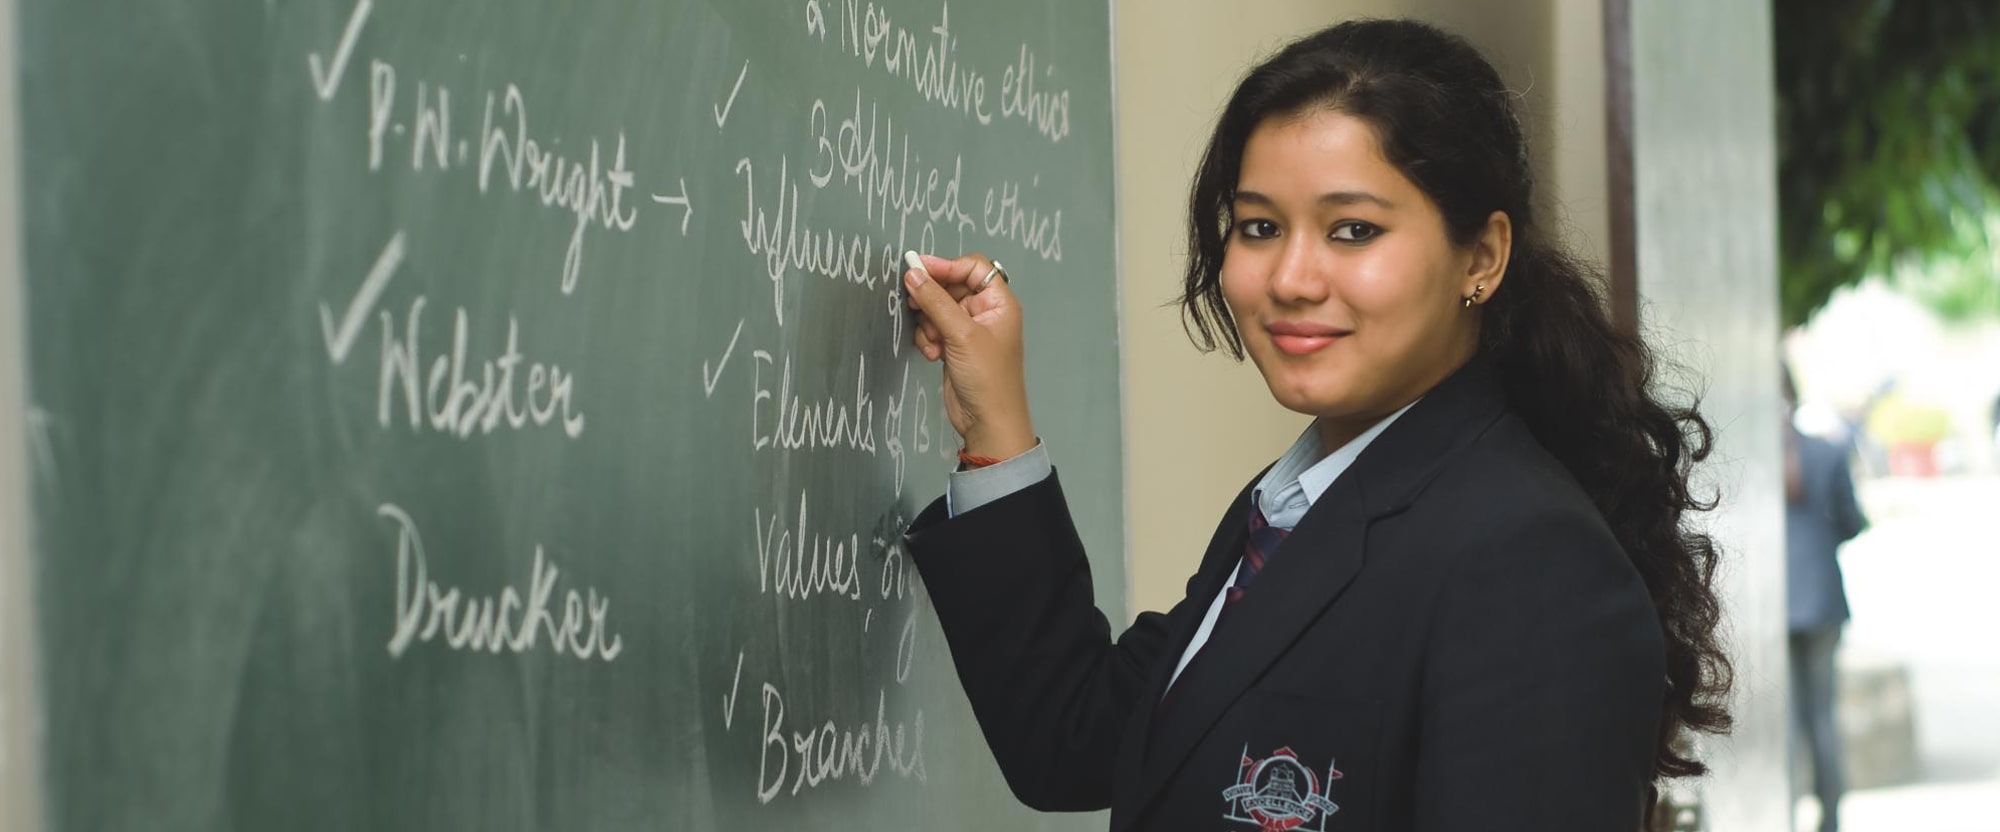 P.W. Wright →
Webster
Drucker
2. Normative ethics
3 Applied ethics
Influence of
Elements of B
Values of
Branches
EXCELLENCE